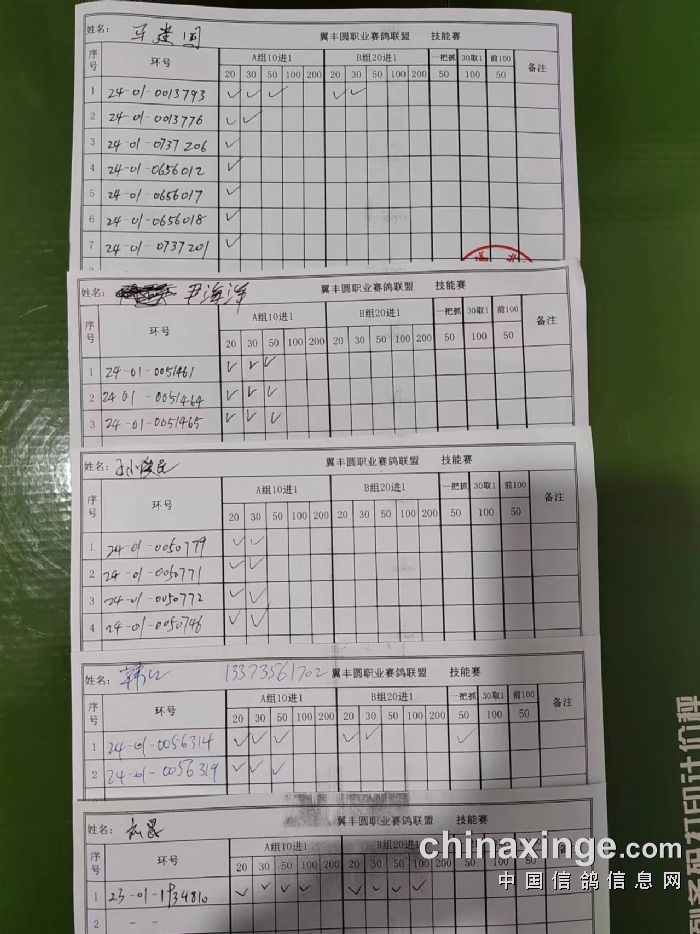 姓名: 平建国 翼丰圆职业赛鸽联盟 技能赛
序号 环号 A组10进1 B组20进1 一把抓 30取1 前100 备注
20 30 50 100 200 20 30 50 100 200 50 100 50
1 24-01-0013793 ✓ ✓ ✓ ✓ ✓
2 24-01-0013776 ✓ ✓
3 24-01-0737206 ✓
4 24-01-0656012 ✓
5 24-01-0656017 ✓
6 24-01-0656018 ✓
7 24-01-0737201 ✓
姓名: 尹海洋 翼丰圆职业赛鸽联盟 技能赛
序号 环号 A组10进1 B组20进1 一把抓 30取1 前100 备注
20 30 50 100 200 20 30 50 100 200 50 100 50
1 24-01-0051461 ✓ ✓ ✓
2 24 01-0051464 ✓ ✓ ✓
3 24-01-0051465 ✓ ✓ ✓
姓名: 翼丰圆职业赛鸽联盟 技能赛
序号 环号 A组10进1 B组20进1 一把抓 30取1 前100 备注
20 30 50 100 200 20 30 50 100 200 50 100 50
1 24-01-0050779 ✓ ✓
2 24-01-0050771 ✓ ✓
3 24-01-0050772 ✓ ✓
4 24-01-0050746 ✓ ✓
姓名: 13373561702 翼丰圆职业赛鸽联盟 技能赛
序号 环号 A组10进1 B组20进1 一把抓 30取1 前100 备注
20 30 50 100 200 20 30 50 100 200 50 100 50
1 24-01-0056314 ✓ ✓ ✓ ✓ ✓ ✓
2 24-01-0056319 ✓ ✓ ✓
姓名: 翼丰圆职业赛鸽联盟
序号 环号 A组10进1 B组20进1
20 30 50 100 200 20 30 50 100 200 50 100 50
1 ✓ ✓ ✓ ✓ ✓ ✓ ✓ ✓
2 - -
chinaxinge.com
中国信鸽信息网